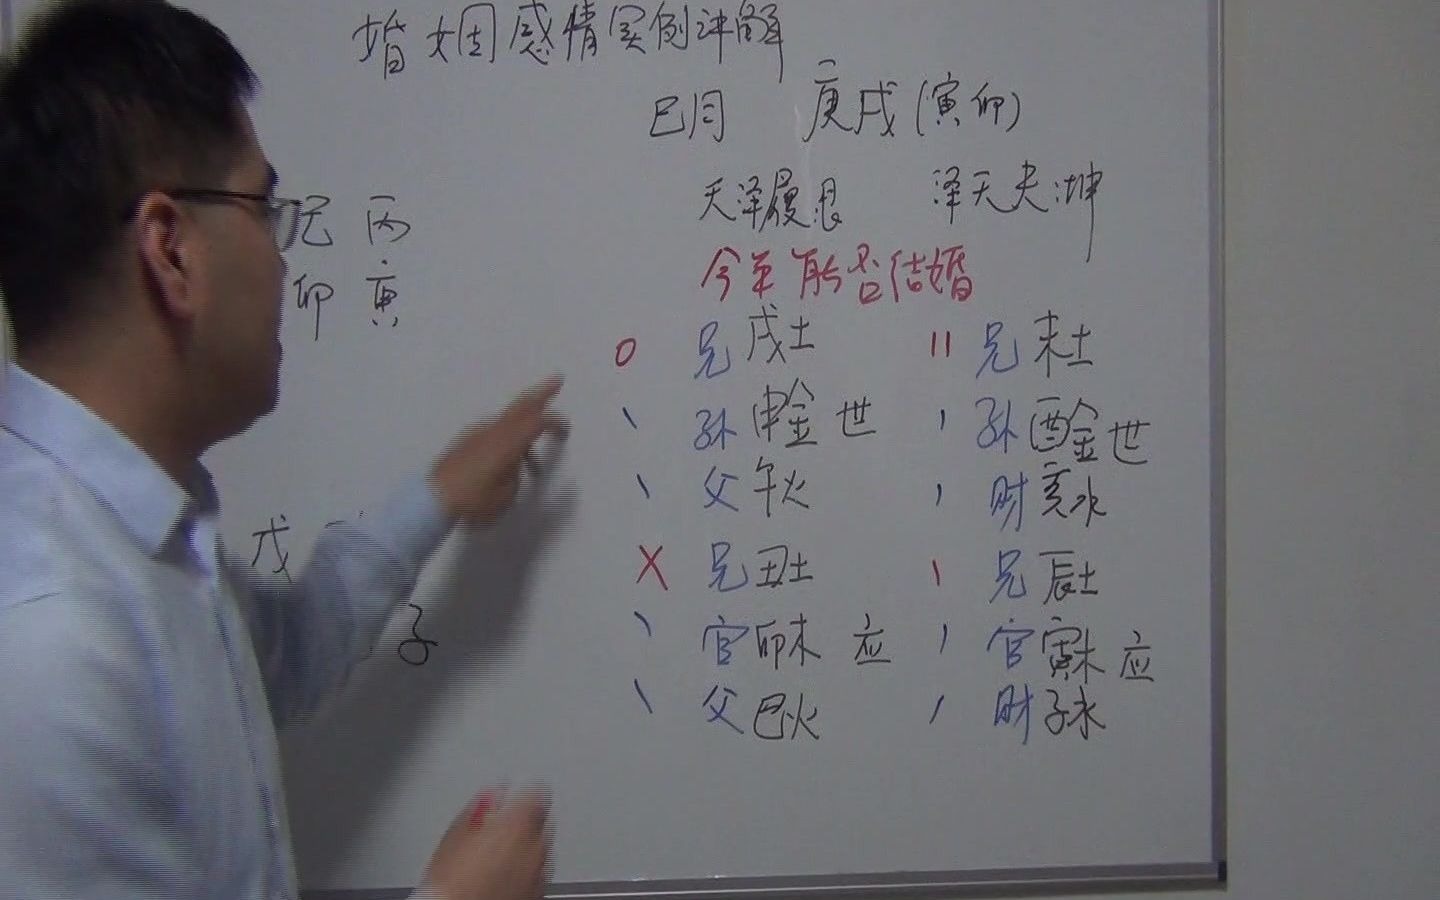 婚姻感情实例详解
巳月 庚戌(寅卯)
天泽履艮 泽天夬坤
今年能否结婚
己 丙
卯 寅
O 兄戌土 〃 兄未土
、 孙申金世 、 孙酉金世
、 父午火 、 财亥水
戊
X 兄丑土 、 兄辰土
子
、 官卯木 应 、 官寅木 应
、 父巳火 、 财子水